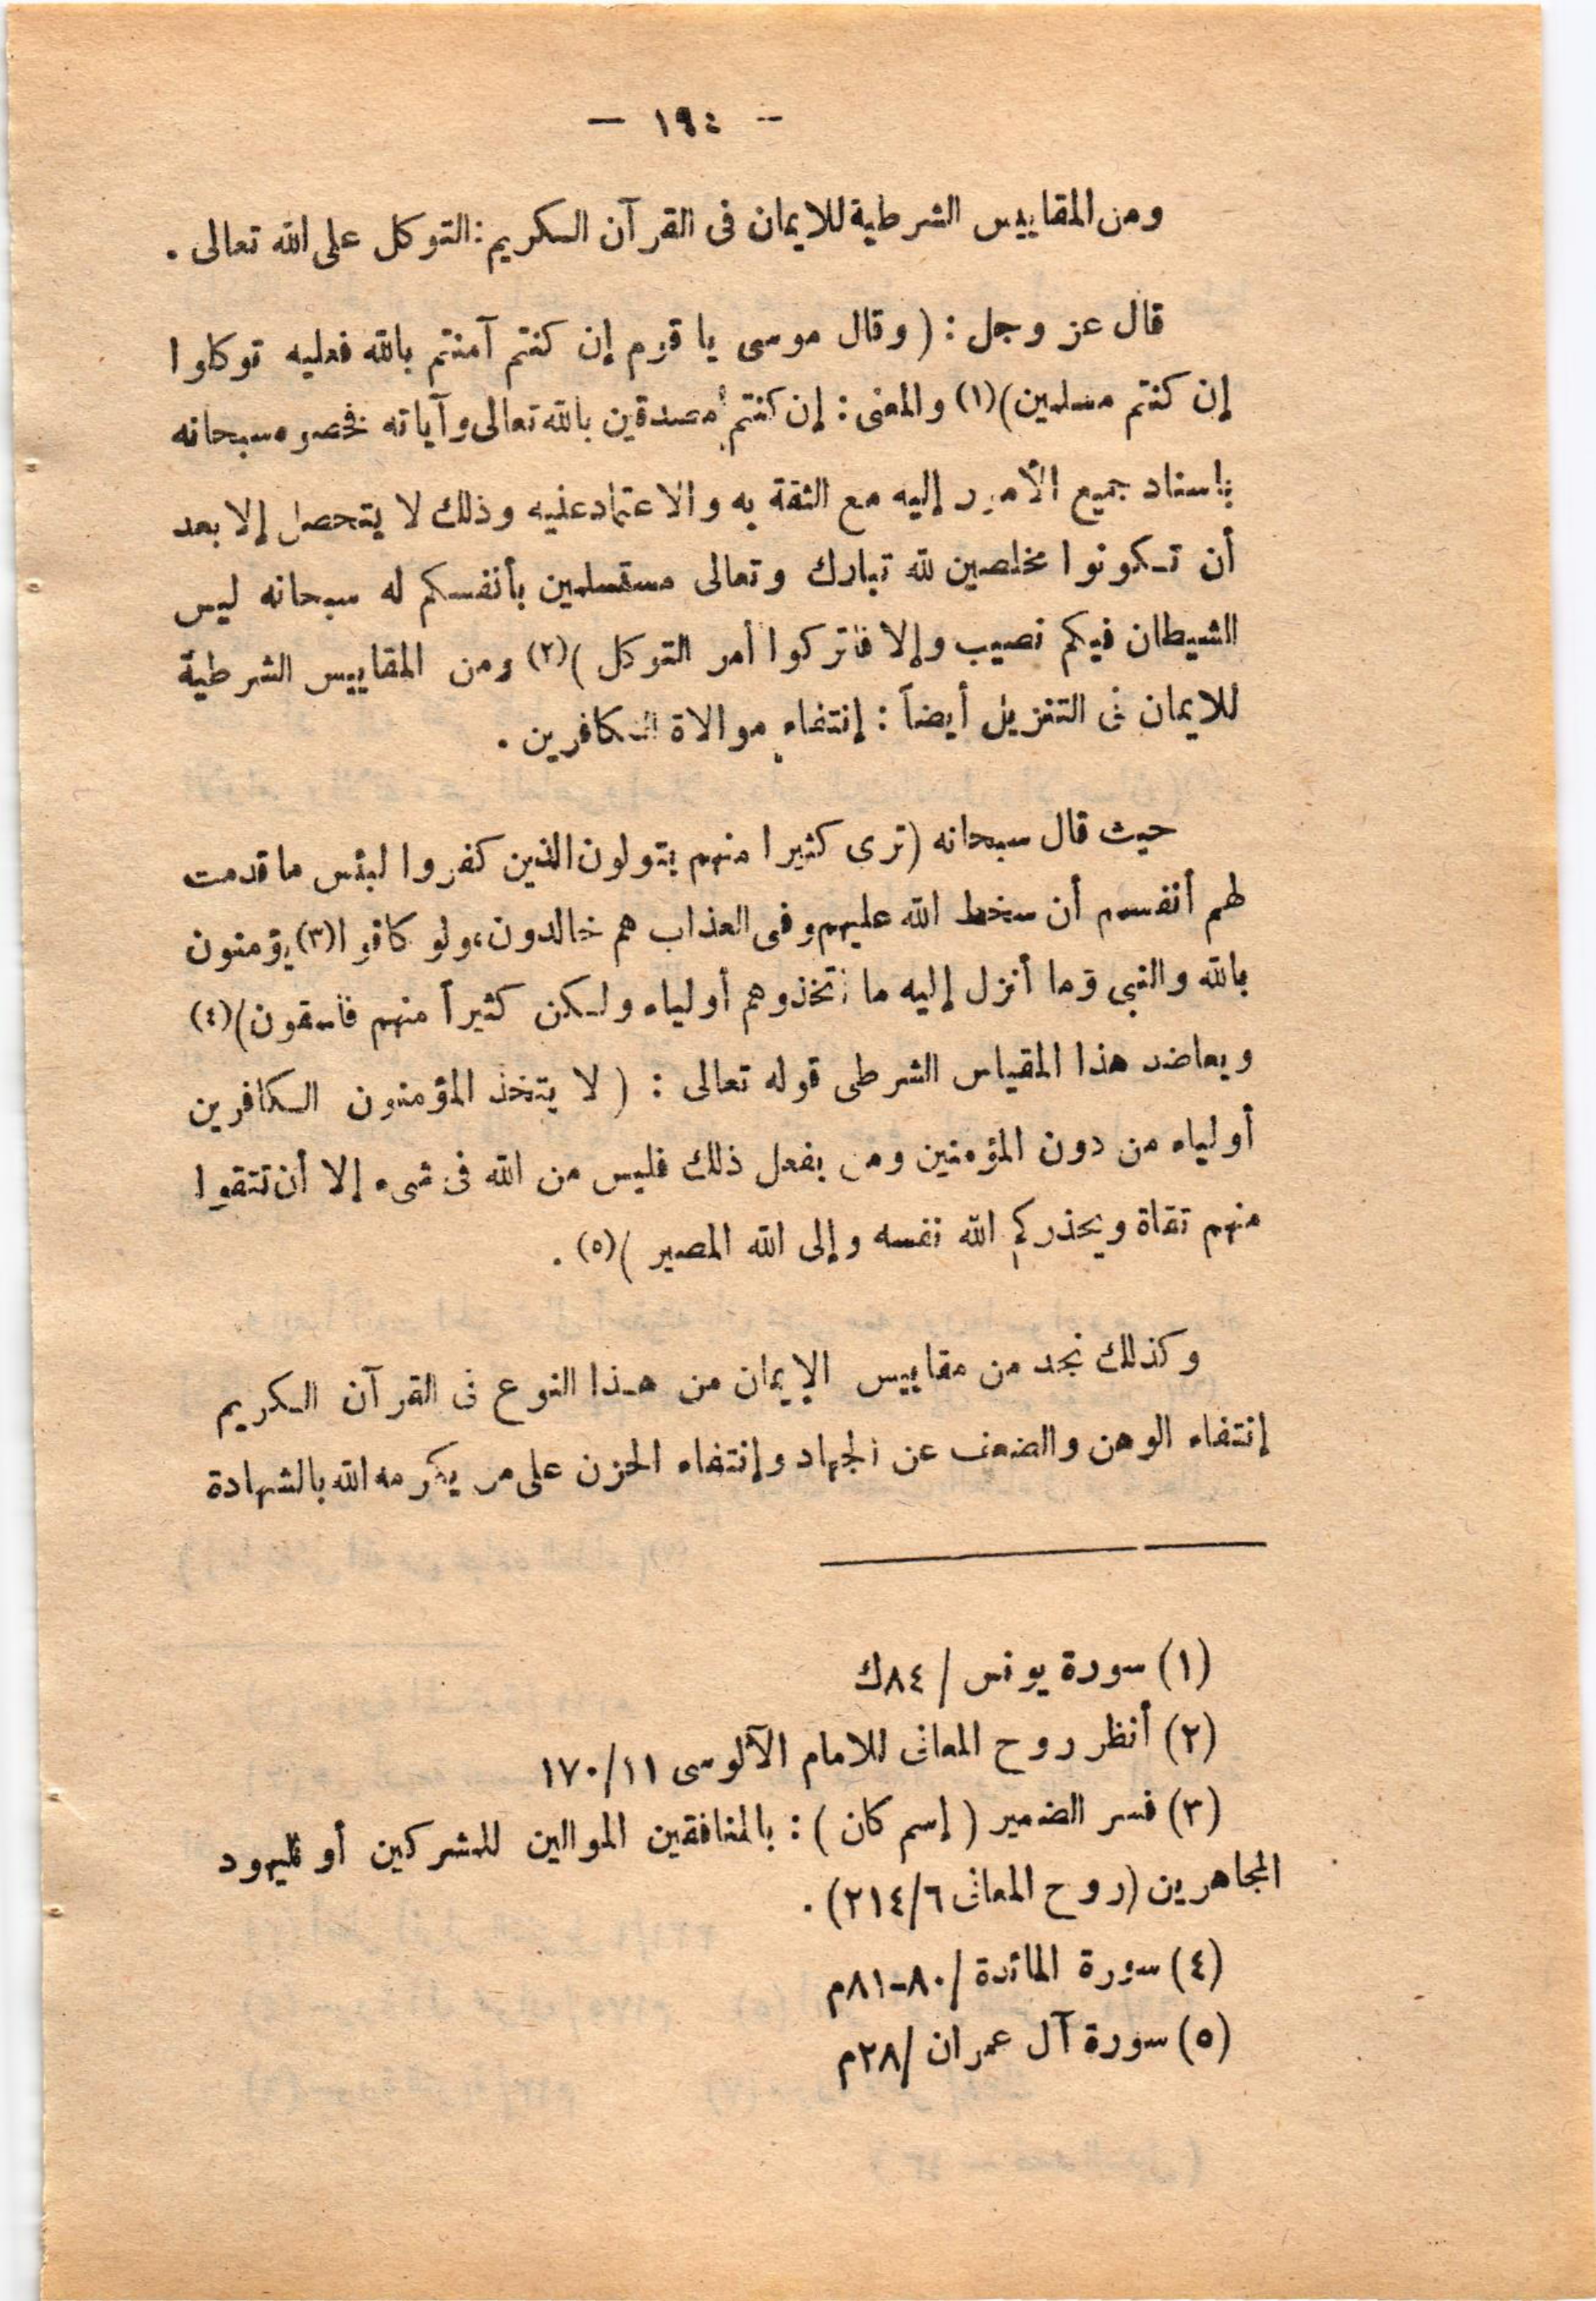 — ١٩٤ —
ومن المقاييس الشرطية للايمان فى القرآن الكريم : التوكل على الله تعالى .
قال عز وجل : ( وقال موسى يا قوم إن كنتم آمنتم بالله فعليه توكلوا
إن كنتم مسلمين)(١) والمعنى : إن كنتم مصدقين بالله تعالى وآياته فخصوه سبحانه
بإسناد جميع الأمور إليه مع الثقة به والاعتماد عليه وذلك لا يتحصل إلا بعد
أن تكونوا مخلصين لله تبارك وتعالى مستسلمين بأنفسكم له سبحانه ليس
الشيطان فيكم نصيب وإلا فاتركوا أمر التوكل )(٢) ومن المقاييس الشرطية
للايمان فى التنزيل أيضاً : إنتفاء موالاة الكافرين .
حيث قال سبحانه (ترى كثيرا منهم يتولون الذين كفروا لبئس ما قدمت
لهم أنفسهم أن سخط الله عليهم وفى العذاب هم خالدون، ولو كانوا(٣) يؤمنون
بالله والنبى وما أنزل إليه ما اتخذوهم أولياء ولكن كثيراً منهم فاسقون)(٤)
ويعاضد هذا المقياس الشرطى قوله تعالى : ( لا يتخذ المؤمنون الكافرين
أولياء من دون المؤمنين ومن يفعل ذلك فليس من الله فى شىء إلا أن تتقوا
منهم تقاة ويحذركم الله نفسه وإلى الله المصير )(٥) .
وكذلك نجد من مقاييس الإيمان من هذا النوع فى القرآن الكريم
إنتفاء الوهن والضعف عن الجهاد وإنتفاء الحزن على من يكرمه الله بالشهادة
(١) سورة يونس / ٨٤ك
(٢) أنظر روح المعانى للامام الآلوسى ١٧٠/١١
(٣) فسر الضمير ( إسم كان ) : بالمنافقين الموالين للمشركين أو لليهود
المجاهرين (روح المعانى ٢١٤/٦) .
(٤) سورة المائدة /٨٠-٨١م
(٥) سورة آل عمران /٢٨م